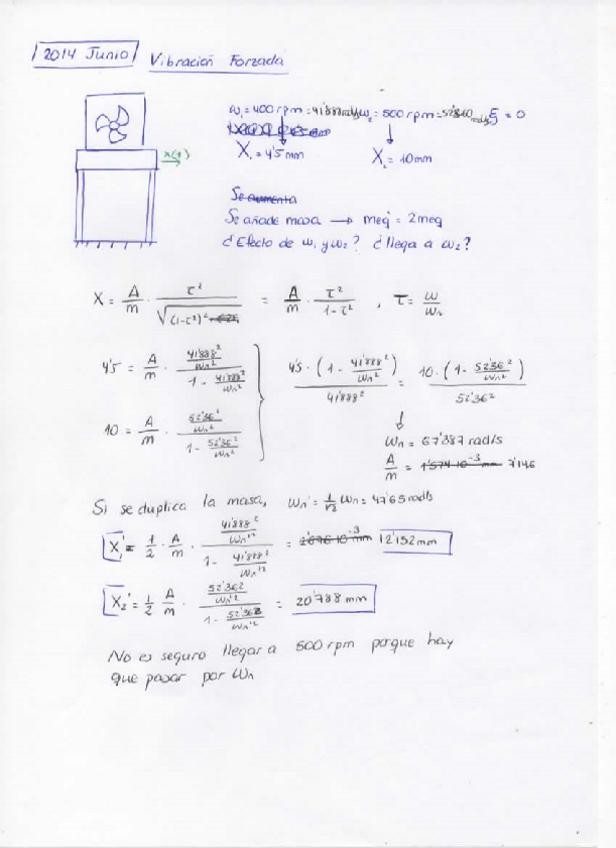 2014 Junio Vibración Forzada
ω₁ = 400 rpm = 41'888 rad/s ω₂ = 500 rpm = 52'360 rad/s ξ = 0
X₁ = 4'5 mm X₂ = 10 mm
x(t)
Se aumenta
Se añade masa → meq' = 2meq
¿Efecto de ω₁ y ω₂? ¿llega a ω₂?
X = A/m · τ²/√((1-τ²)²) = A/m · τ²/(1-τ²) , τ = ω/ωn
4'5 = A/m · (41'888²/ωn²)/(1 - 41'888²/ωn²) } 4'5 · (1 - 41'888²/ωn²)/41'888² = 10 · (1 - 52'36²/ωn²)/52'36²
10 = A/m · (52'36²/ωn²)/(1 - 52'36²/ωn²)
↓
ωn = 67'387 rad/s
A/m = 1'574·10⁻³ mm 7'146
Si se duplica la masa, ωn' = 1/√2 ωn = 47'65 rad/s
X₁' = 1/2 · A/m · (41'888²/ωn'²)/(1 - 41'888²/ωn'²) = 2'676·10⁻³ mm 12'152 mm
X₂' = 1/2 A/m · (52'36²/ωn'²)/(1 - 52'36²/ωn'²) = 20'788 mm
No es seguro llegar a 500 rpm porque hay
que pasar por ωn